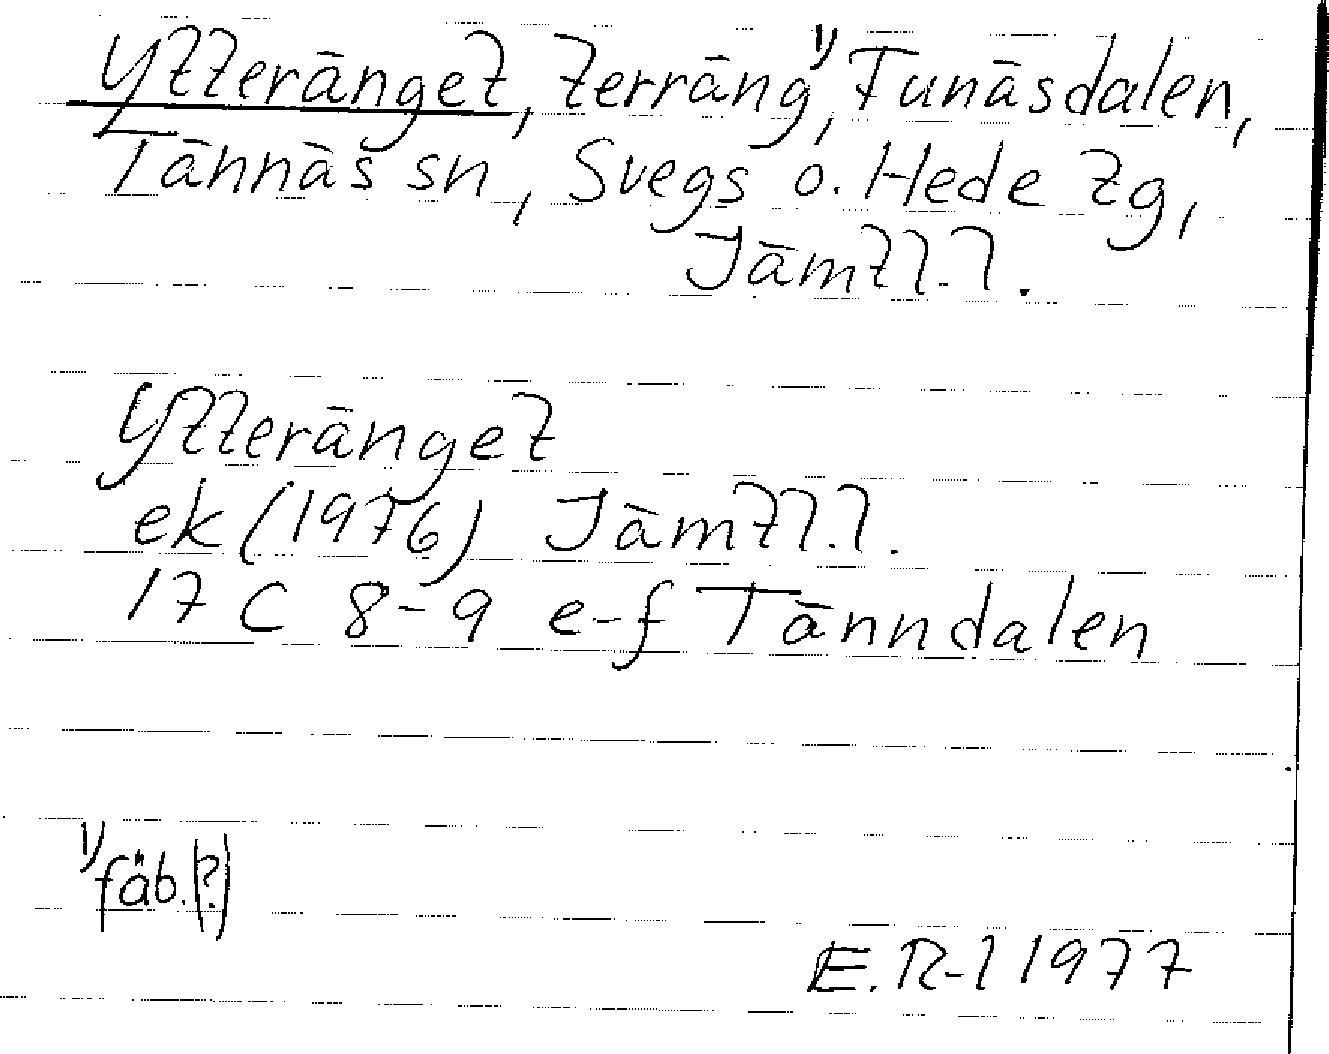 Ytteränget, terräng¹⁾, Funäsdalen,
Tännäs sn, Svegs o. Hede tg,
Jämtl.l.
Ytteränget
ek (1976) Jämtl.l.
17 C 8-9 e-f Tänndalen
¹⁾ fäb.(?)
E.R-l 1977